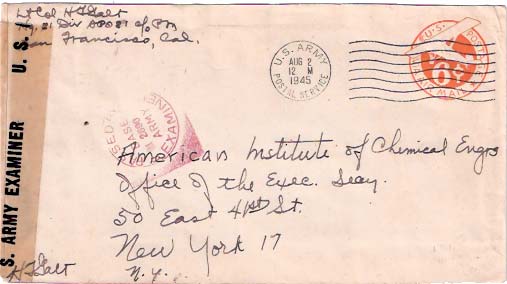 Lt Col H F Galt
Hq. 81 Div APO 81 c/o PM
San Francisco, Cal.
U. S. ARMY
AUG 2
12 M
1945
POSTAL SERVICE
U.S. POSTAGE
6¢
AIR MAIL
U. S.
S. ARMY EXAMINER
PASSED
BASE
ARMY EXAMINER
American Institute of Chemical Engrs
Office of the Exec. Secy.
50 East 41st St.
New York 17
N.Y.
H F Galt